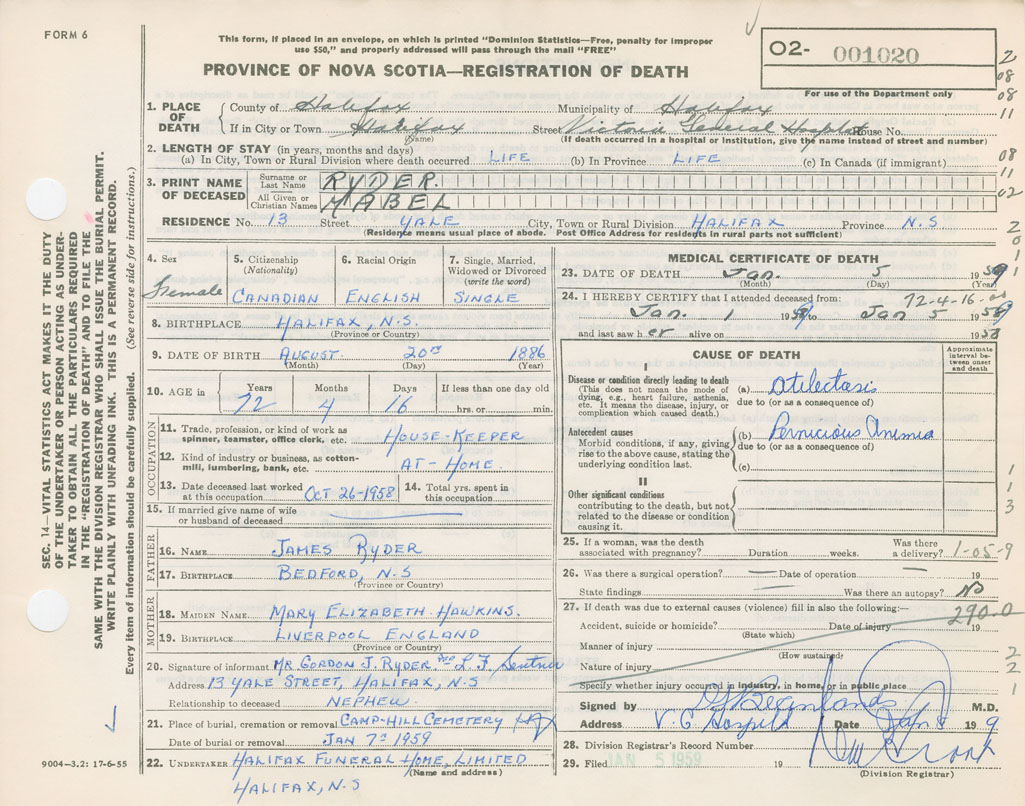 FORM 6
This form, if placed in an envelope, on which is printed "Dominion Statistics—Free, penalty for improper
use $50," and properly addressed will pass through the mail "FREE"
O2- 001020
For use of the Department only
PROVINCE OF NOVA SCOTIA—REGISTRATION OF DEATH
2
08
08
11
08
11
02
2
0
1
1
1. PLACE OF DEATH
County of Halifax Municipality of Halifax
If in City or Town Halifax Street Victoria General Hospital House No.
(Name) (If death occurred in a hospital or institution, give the name instead of street and number)
2. LENGTH OF STAY (in years, months and days)
(a) In City, Town or Rural Division where death occurred LIFE (b) In Province LIFE (c) In Canada (if immigrant)
3. PRINT NAME OF DECEASED
Surname or Last Name RYDER.
All Given or Christian Names MABEL
RESIDENCE No. 13 Street YALE City, Town or Rural Division HALIFAX Province N.S
(Residence means usual place of abode. Post Office Address for residents in rural parts not sufficient)
4. Sex
Female
5. Citizenship
(Nationality)
CANADIAN
6. Racial Origin
ENGLISH
7. Single, Married,
Widowed or Divorced
(write the word)
SINGLE
8. BIRTHPLACE HALIFAX, N.S.
(Province or Country)
9. DATE OF BIRTH AUGUST. 20TH 1886
(Month) (Day) (Year)
10. AGE in Years Months Days If less than one day old
72 4 16 hrs. or min.
OCCUPATION
11. Trade, profession, or kind of work as
spinner, teamster, office clerk, etc. HOUSE-KEEPER
12. Kind of industry or business, as cotton-
mill, lumbering, bank, etc. AT-HOME.
13. Date deceased last worked
at this occupation OCT 26-1958
14. Total yrs. spent in
this occupation
15. If married give name of wife
or husband of deceased
FATHER
16. NAME JAMES RYDER
17. BIRTHPLACE BEDFORD, N.S
(Province or Country)
MOTHER
18. MAIDEN NAME MARY ELIZABETH HAWKINS.
19. BIRTHPLACE LIVERPOOL ENGLAND
(Province or Country)
20. Signature of informant MR GORDON J. RYDER per L. F.
Address 13 YALE STREET, HALIFAX, N.S
Relationship to deceased NEPHEW
21. Place of burial, cremation or removal CAMP-HILL CEMETERY Hfx
Date of burial or removal JAN 7TH 1959
22. UNDERTAKER HALIFAX FUNERAL HOME, LIMITED
(Name and address)
HALIFAX, N.S
MEDICAL CERTIFICATE OF DEATH
23. DATE OF DEATH Jan. 5 1959
(Month) (Day) (Year)
72-4-16
24. I HEREBY CERTIFY that I attended deceased from:
Jan. 1 1959 to Jan 5 1959
and last saw her alive on 1958
CAUSE OF DEATH
Approximate
interval be-
tween onset
and death
I
Disease or condition directly leading to death
(This does not mean the mode of
dying, e.g., heart failure, asthenia,
etc. It means the disease, injury, or
complication which caused death.)
(a) Atilectasis
due to (or as a consequence of)
Antecedent causes
Morbid conditions, if any, giving
rise to the above cause, stating the
underlying condition last.
(b) Pernicious Anemia
due to (or as a consequence of)
(c)
II
Other significant conditions
contributing to the death, but not
related to the disease or condition
causing it.
1
1
3
25. If a woman, was the death
associated with pregnancy? Duration weeks. Was there
a delivery? 1-05-9
26. Was there a surgical operation? — Date of operation — 19
State findings Was there an autopsy? No
27. If death was due to external causes (violence) fill in also the following:—
290.0
Accident, suicide or homicide? Date of injury 19
(State which)
Manner of injury
(How sustained)
Nature of injury
Specify whether injury occurred in industry, in home, or in public place
2
2
1
Signed by M.D.
Address V. G Hospital Date Jan 8 1959
28. Division Registrar's Record Number
29. Filed JAN 5 1959 19
(Division Registrar)
SEC. 14—VITAL STATISTICS ACT MAKES IT THE DUTY
OF THE UNDERTAKER OR PERSON ACTING AS UNDER-
TAKER TO OBTAIN ALL THE PARTICULARS REQUIRED
IN THE "REGISTRATION OF DEATH" AND TO FILE THE
SAME WITH THE DIVISION REGISTRAR WHO SHALL ISSUE THE BURIAL PERMIT.
WRITE PLAINLY WITH UNFADING INK. THIS IS A PERMANENT RECORD.
Every item of information should be carefully supplied. (See reverse side for instructions.)
9004-3,2: 17-6-55